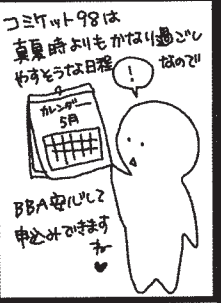 コミケット98は
真夏時よりもかなり過ごし
やすそうな日程なので
!
カレンダー
5月
BBA安心して
申込みできます
ねー
♥